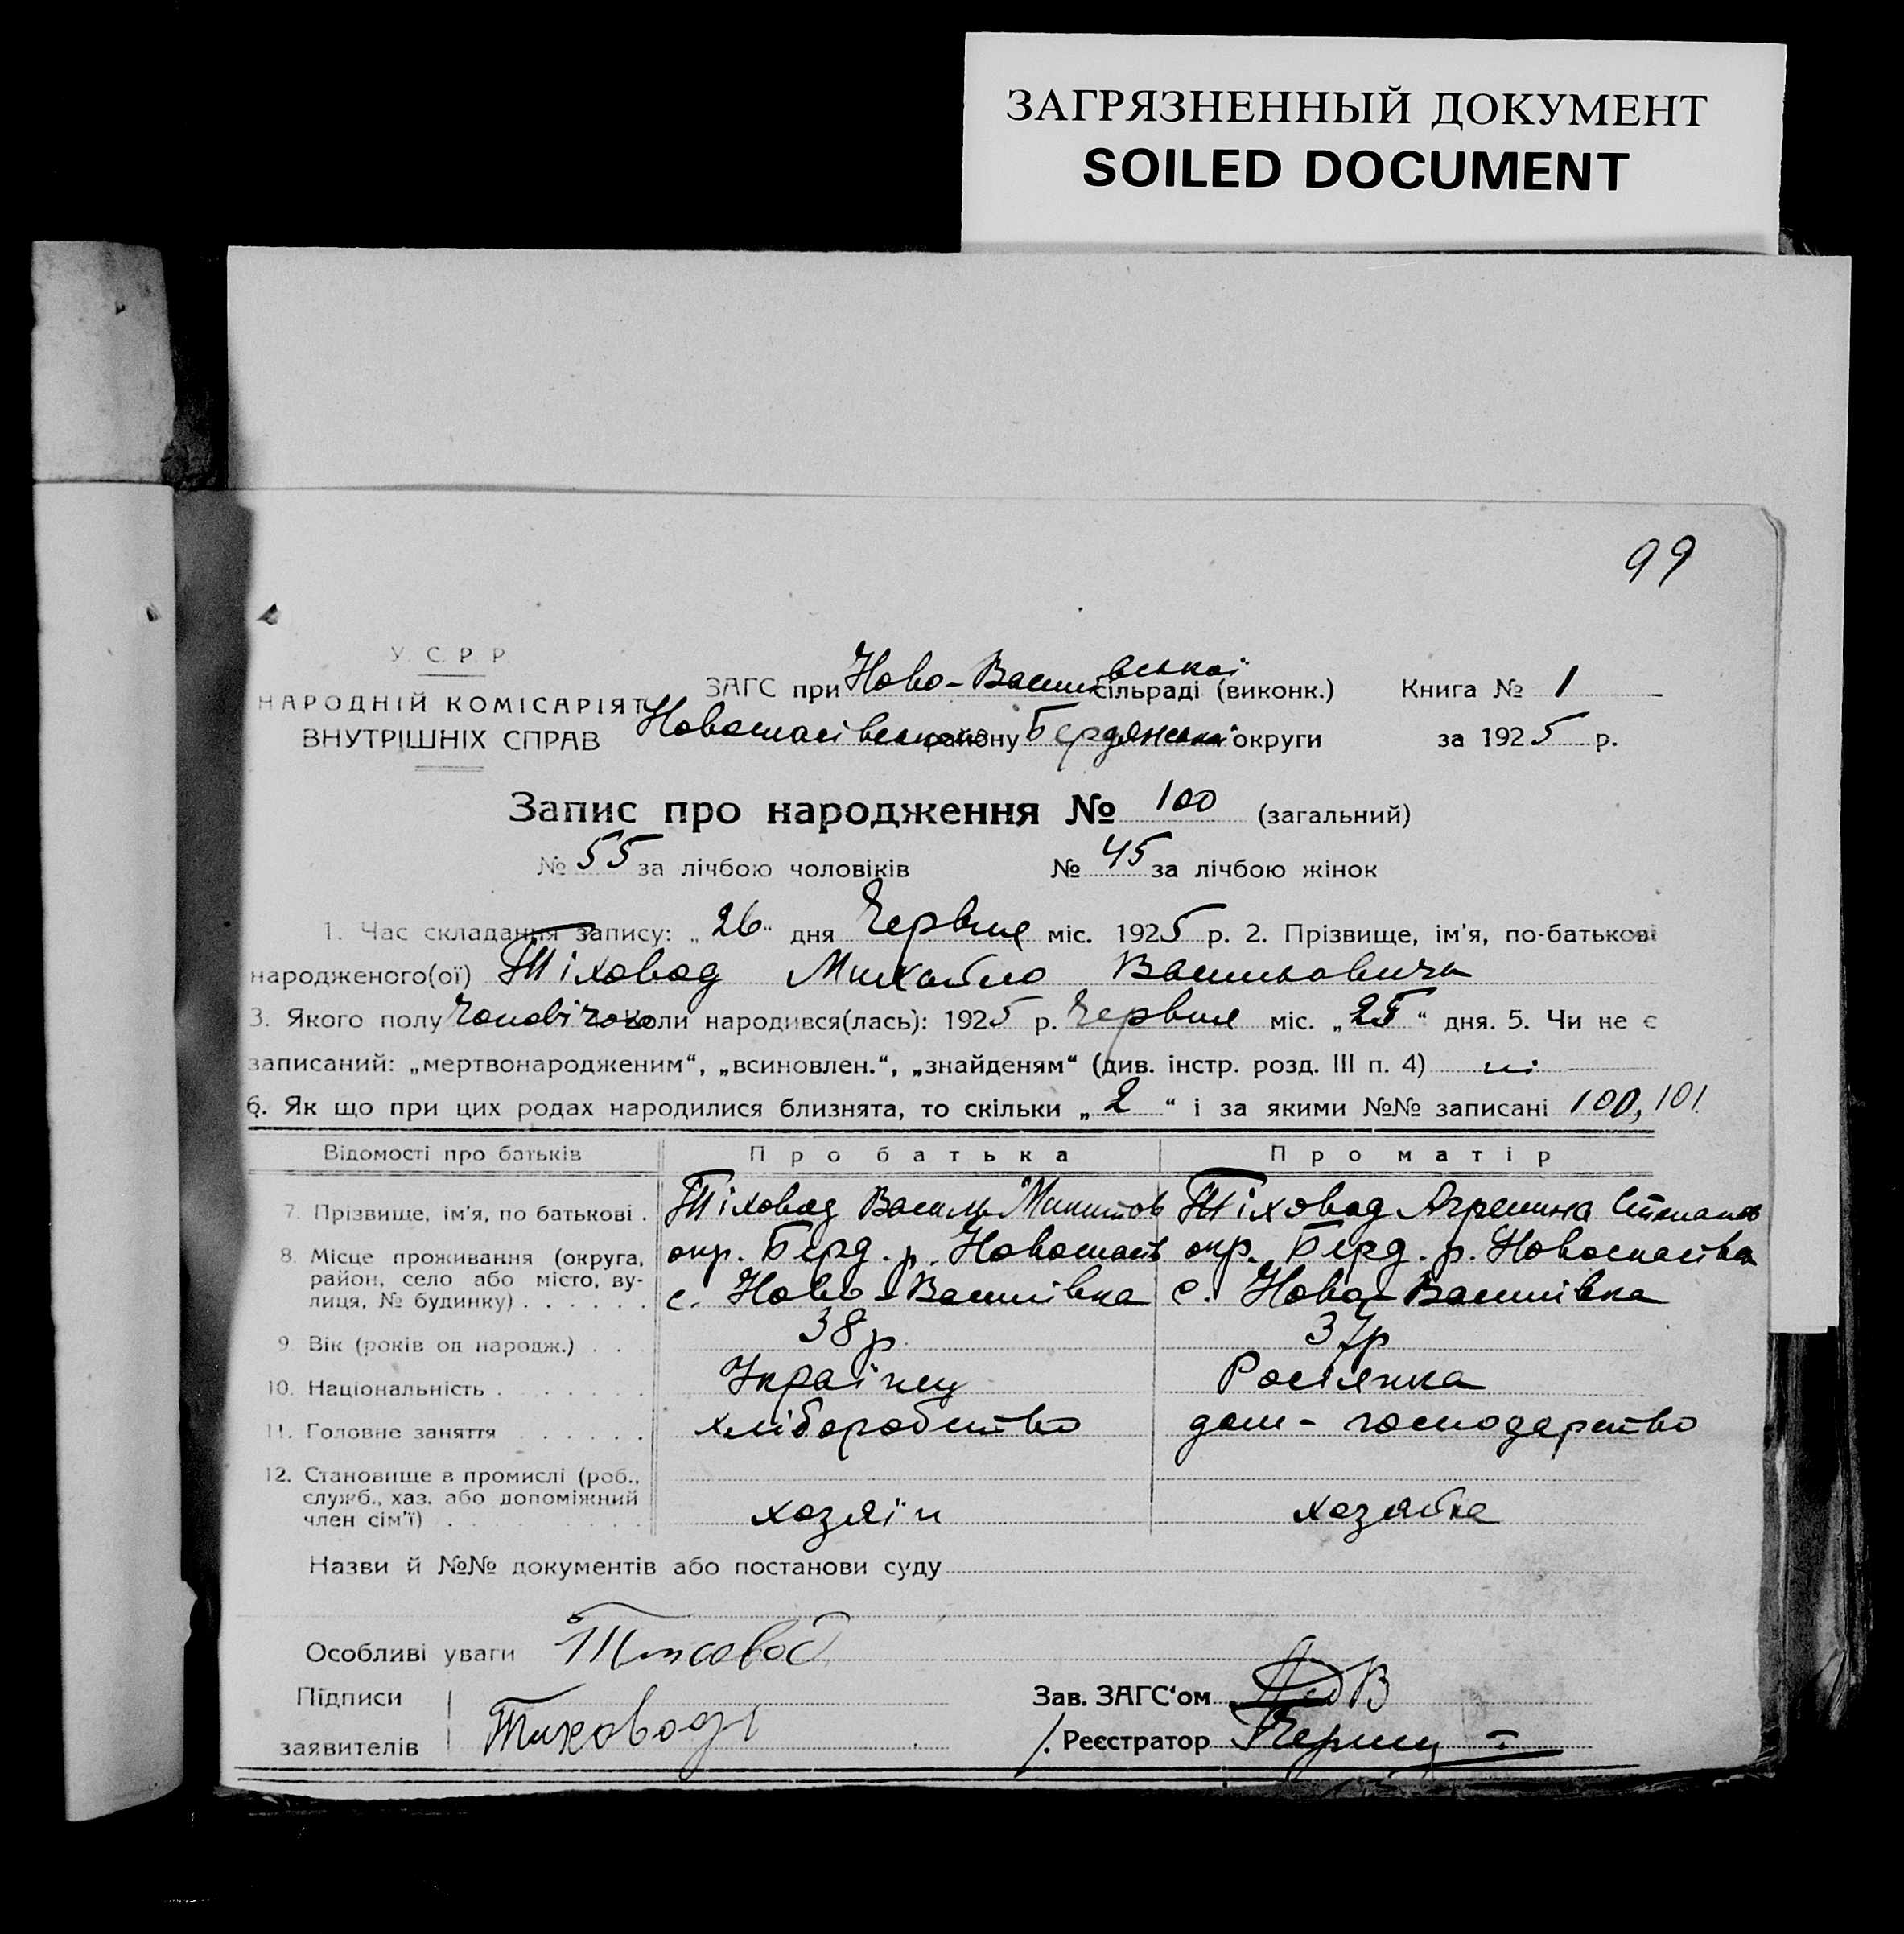 ЗАГРЯЗНЕННЫЙ ДОКУМЕНТ
SOILED DOCUMENT
99
У. С. Р. Р.
НАРОДНІЙ КОМІСАРІЯТ
ВНУТРІШНІХ СПРАВ
ЗАГС при Ново-Василівської сільраді (виконк.) Книга № 1
Новоспасівського району Бердянської округи за 1925 р.
Запис про народження № 100 (загальний)
№ 55 за лічбою чоловіків № 45 за лічбою жінок
1. Час складання запису: „26“ дня Червня міс. 1925 р. 2. Прізвище, ім'я, по-батькові
народженого(ої) Тіховод Михайло Васильович
3. Якого полу чоловічого коли народився(лась): 1925 р. Червня міс. „25“ дня. 5. Чи не є
записаний: „мертвонародженим“, „всиновлен.“, „знайденям“ (див. інстр. розд. III п. 4) ні
6. Як що при цих родах народилися близнята, то скільки „2“ і за якими №№ записані 100, 101
Відомості про батьків Про батька Про матір
7. Прізвище, ім'я, по батькові . Тіховод Василь Микитов Тіховод Агрепина Степанов
8. Місце проживання (округа, окр. Берд. р. Новоспасів окр. Берд. р. Новоспасівка
район, село або місто, ву-
лиця, № будинку) . . . . . . с. Ново-Василівка с. Ново-Василівка
9. Вік (років од народж.) . . . 38 р. 37р
10. Національність . . . . . . . Українец Росіянка
11. Головне заняття . . . . . . хліборобство дом-господарство
12. Становище в промислі (роб.,
служб., хаз. або допоміжний
член сім'ї) . . . . . . . . . хозяїн хозяйка
Назви й №№ документів або постанови суду
Особливі уваги Тиховод
Підписи
заявителів Тиховод
Зав. ЗАГС'ом
Реєстратор